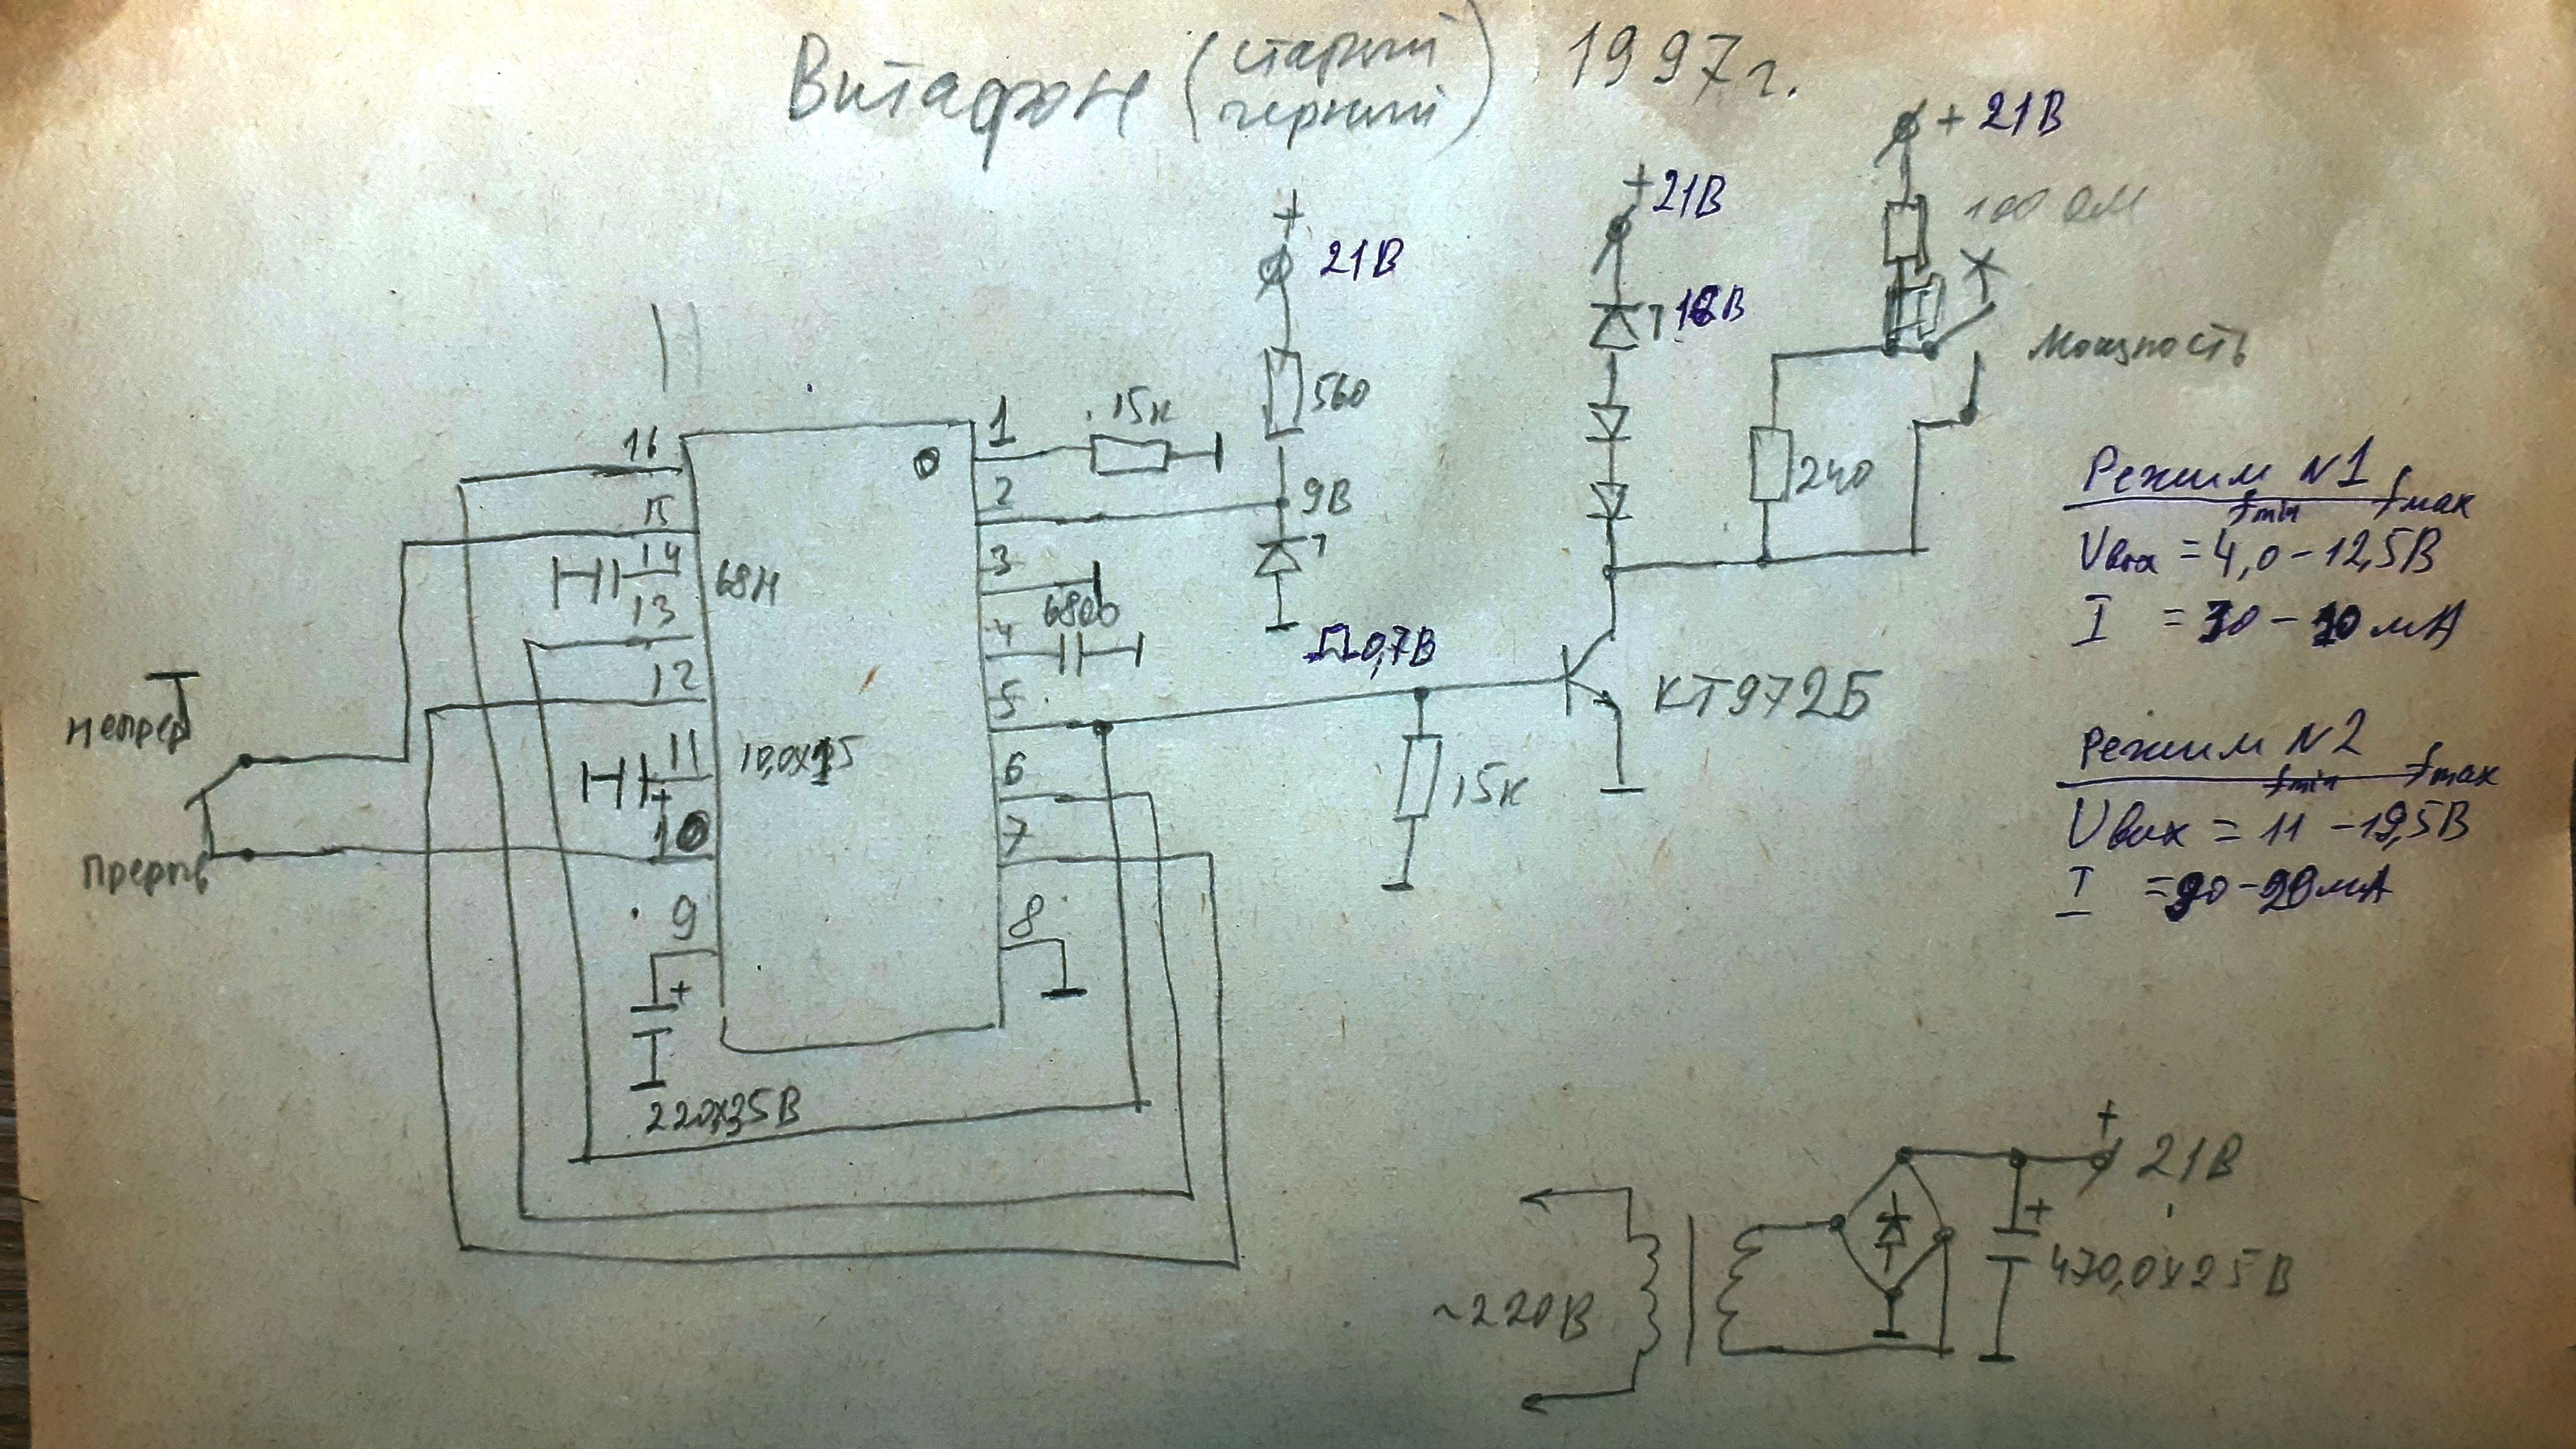 Витафон (старый
черный) 1997г.
+ 21В
+ 21В
100 Ом
+
21В
18В
560
Мощность
*
1
15к
16
2
9В
240
15
3
14
68Н
6800
13
4
0,7В
12
5
КТ972Б
Непрер
11
10,0х25
6
15к
+
10
7
Прерыв
9
8
+
220х25В
Режим N1
fmin fmax
Uвых = 4,0 - 12,5В
I = 30 - 10 мА
Режим N2
fmin fmax
Uвых = 11 - 19,5В
I = 90 - 20мА
+
21В
+
470,0х25В
~220В